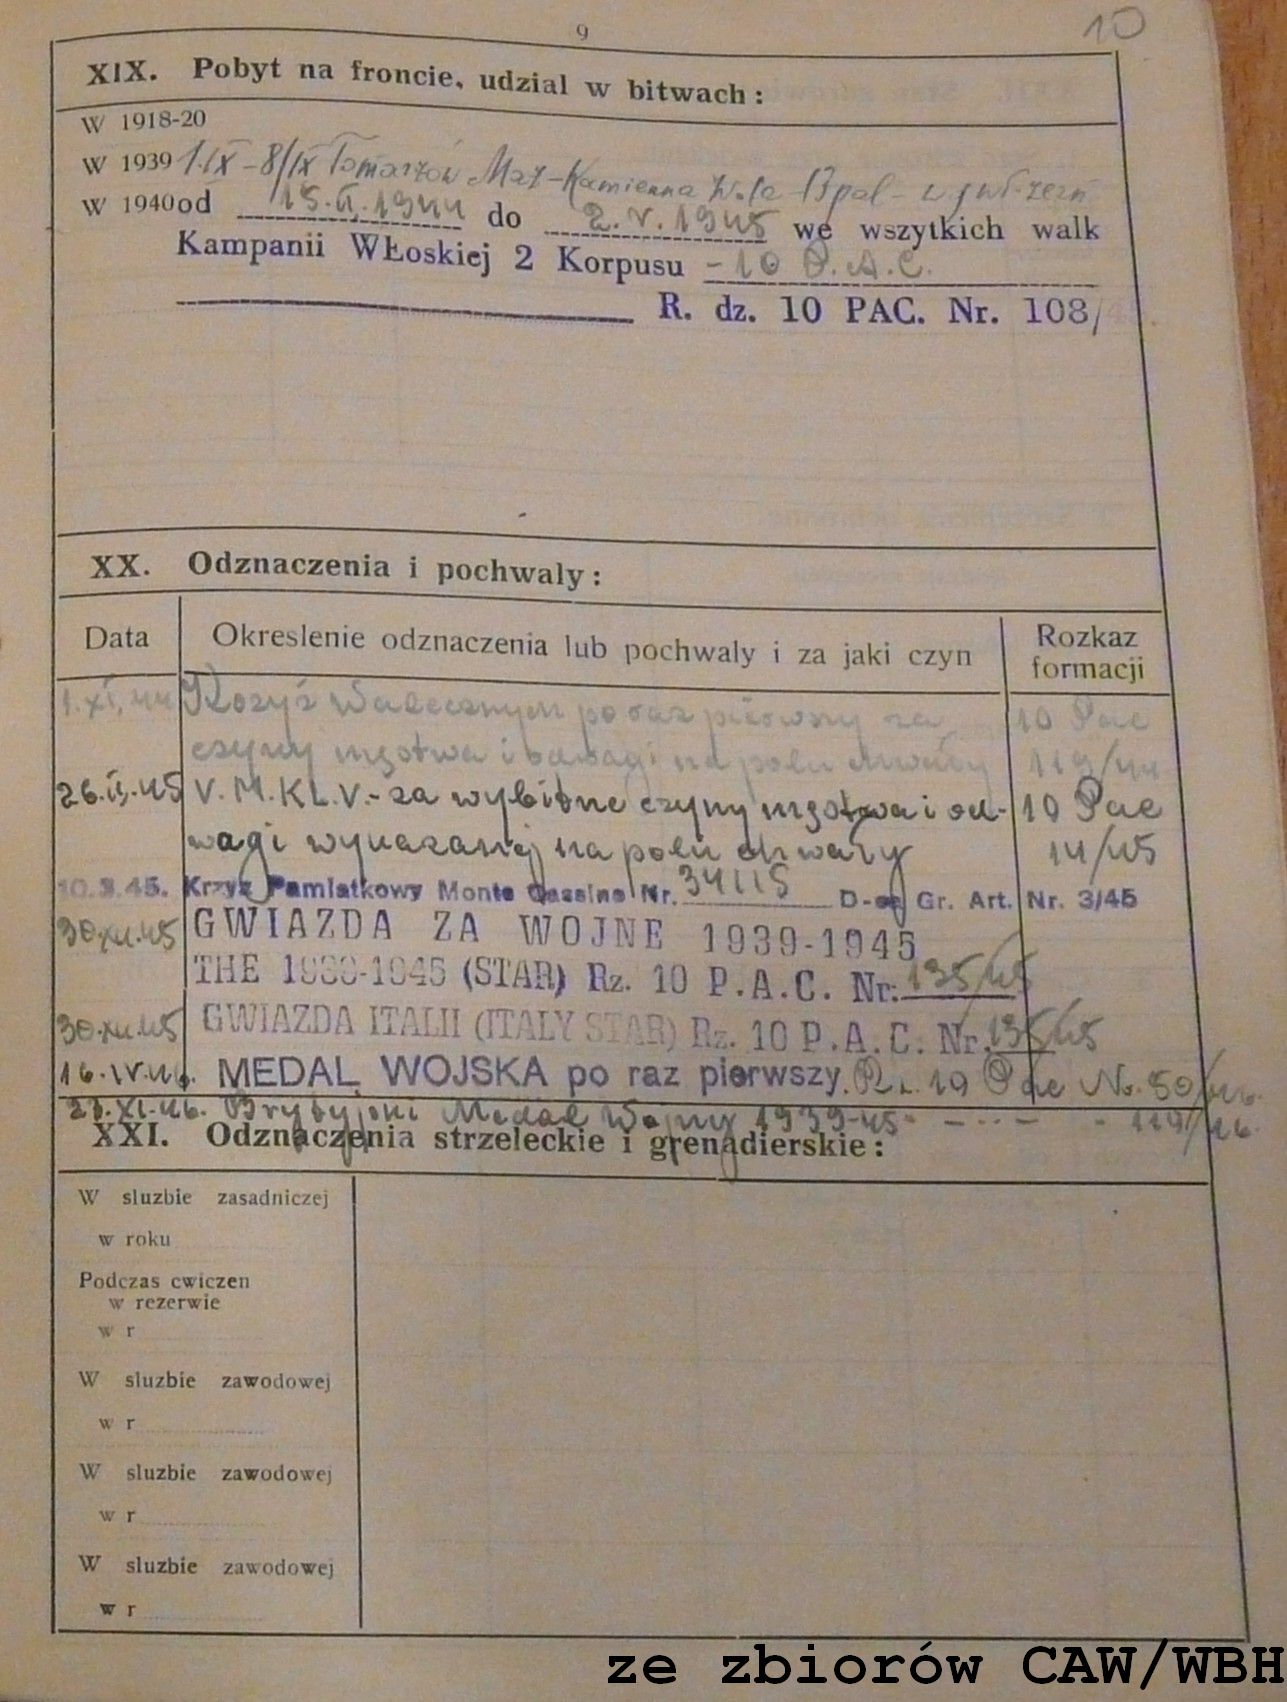 9
10
XIX. Pobyt na froncie, udzial w bitwach:
W 1918-20
W 1939 1.IX - 8/IX Tomaszów Maz - Kamienna Wola 13 pal -
W 1940 od 15.II.1944 do 2.V.1945 we wszytkich walk
Kampanii WŁoskiej 2 Korpusu - 10 P.A.C.
R. dz. 10 PAC. Nr. 108/
XX. Odznaczenia i pochwaly:
Data Okreslenie odznaczenia lub pochwaly i za jaki czyn Rozkaz formacji
1.XI.44 Krzyż Walecznych po raz pierwszy za 10 Pac
czyny męstwa i odwagi na polu chwały 119/44
26.II.45 V.M.KL.V.- za wybitne czyny męstwa i od- 10 Pac
wagi wykazanej na polu chwały 14/45
10.3.45. Krzyz Pamiatkowy Monte Cassino Nr. 34115 D-ca Gr. Art. Nr. 3/45
30.XII.45 GWIAZDA ZA WOJNE 1939-1945
THE 1939-1945 (STAR) Rz. 10 P.A.C. Nr: 135/45
30.XII.45 GWIAZDA ITALII (ITALY STAR) Rz. 10 P.A.C. Nr. 135/45
16.IV.46. MEDAL WOJSKA po raz pierwszy. Rz. 10 Pac No. 50/46.
23.XI.46. Brytyjski Medal Wojny 1939-45 - 119/46.
XXI. Odznaczenia strzeleckie i grenadierskie:
W sluzbie zasadniczej
w roku
Podczas cwiczen
w rezerwie
w r
W sluzbie zawodowej
w r
W sluzbie zawodowej
w r
W sluzbie zawodowej
w r
ze zbiorów CAW/WBH